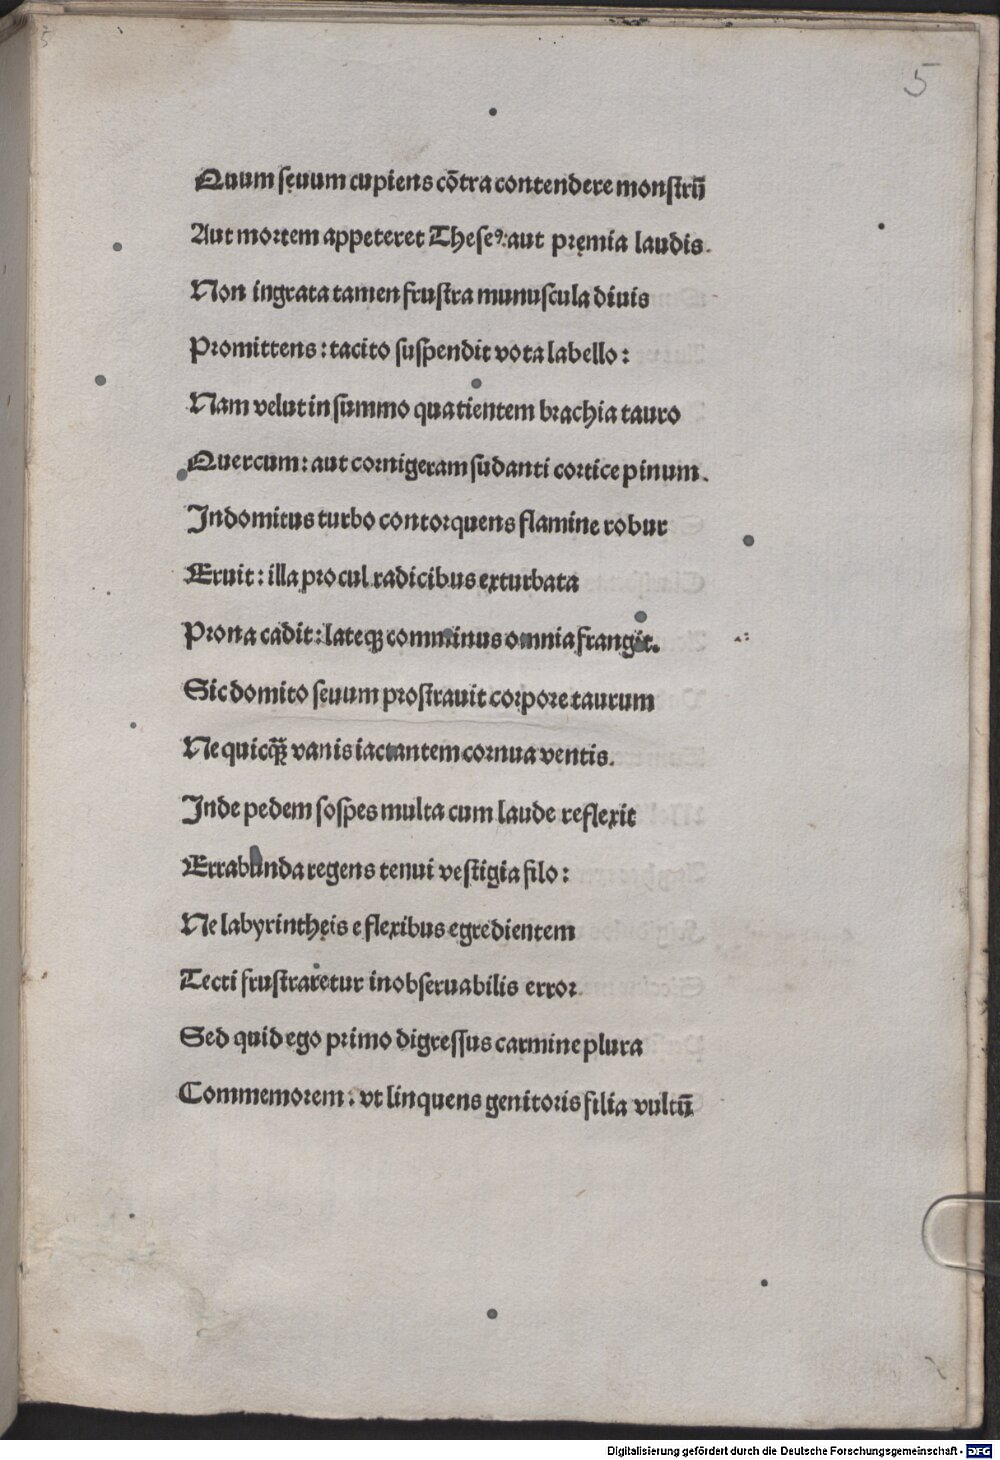 5
Quum sęuum cupiens cōtra contendere monstrū
Aut mortem appeteret Theseꝰ: aut pręmia laudis.
Non ingrata tamen frustra munuscula diuis
Promittens: tacito suspendit vota labello:
Nam velut in summo quatientem brachia tauro
Quercum: aut cornigeram sudanti cortice pinum.
Indomitus turbo contorquens flamine robur
Eruit: illa procul radicibus exturbata
Prona cadit: lateqꝫ comminus omnia frangit.
Sic domito seuum prostrauit corpore taurum
Ne quicq̄ꝫ vanis iactantem cornua ventis.
Inde pedem sospes multa cum laude reflexit
Errabunda regens tenui vestigia filo:
Ne labyrinthęis e flexibus egredientem
Tecti frustraretur inobseruabilis error.
Sed quid ego primo digressus carmine plura
Commemorem: vt linquens genitoris filia vultū
Digitalisierung gefördert durch die Deutsche Forschungsgemeinschaft - DFG